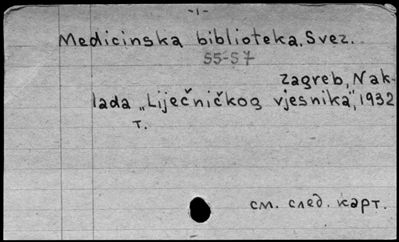 -1-
Medicinska biblioteka, Svez.
55-57
Zagreb, Nak-
lada „Liječničkog vjesnika", 1932
т.
см. след. карт.